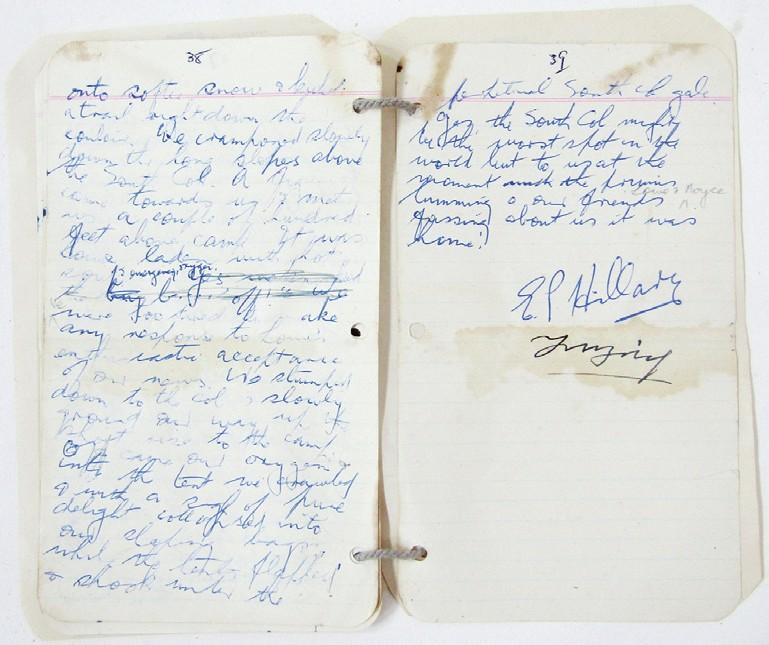 38
onto softer snow &
a trail right down the
couloir. We cramponed slowly
down the long slopes above
the South Col. A
came towards us & met
us a couple of hundred
feet above camp. It was
laden with hot
& emergency oxygen.
were too tired to make
any response to Lowe's
enthusiastic acceptance
of our news. We stumped
down to the Col & slowly
ground our way up the
short rise to the camp
Off came our oxygen
into the tent we crawled
& with a sigh of pure
delight collapsed into
our sleeping bags
while the tents flapped
& shook under the
39
perpetual South Col gale.
Yes, the South Col might
be the worst spot in the
world but to us at the
moment with the primus
humming & our friends
Lowe & Noyce
fussing about us it was
home!
E P Hillary
Tenzing